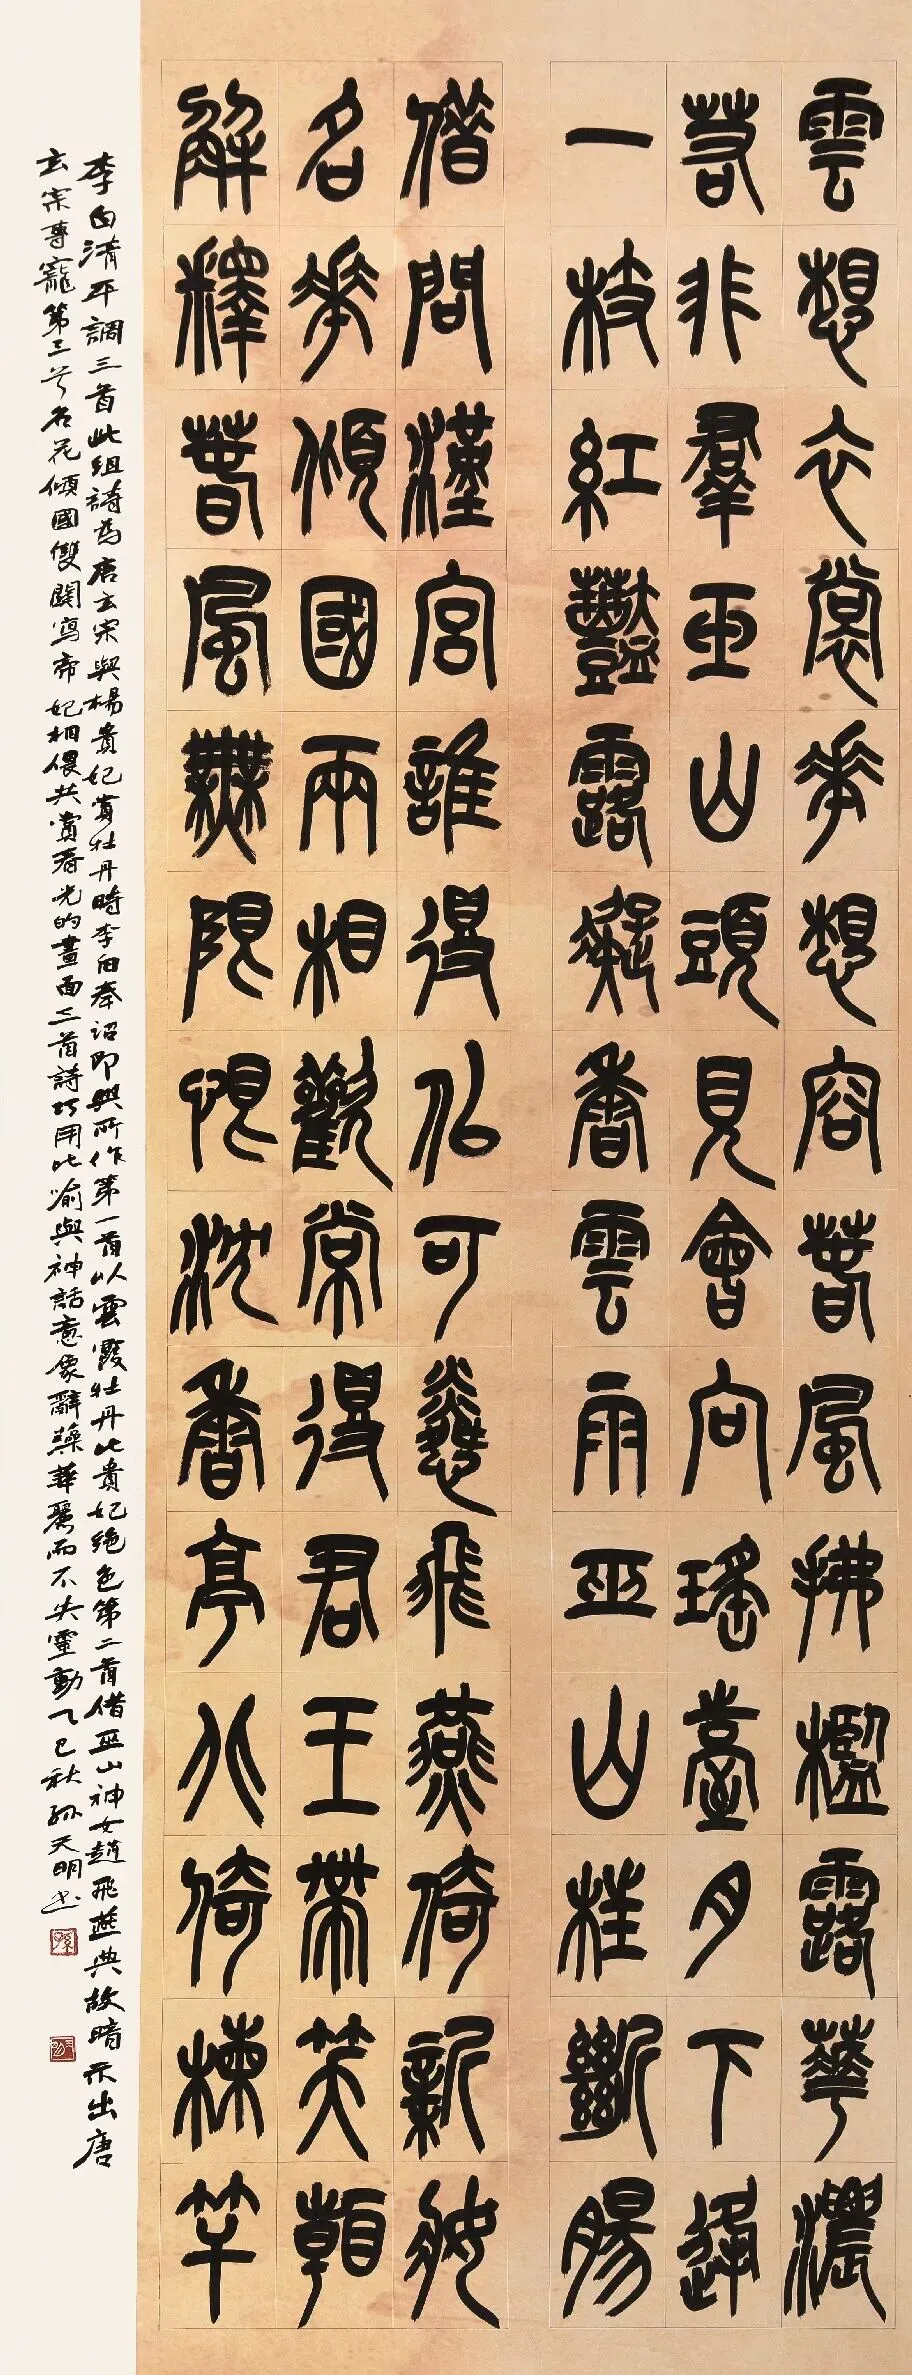 雲想衣裳花想容春風拂檻露華濃
若非羣玉山頭見會向瑤臺月下逢
一枝紅豔露凝香雲雨巫山枉斷腸
借問漢宮誰得似可憐飛燕倚新妝
名花傾國兩相歡常得君王帶笑看
解釋春風無限恨沈香亭北倚楝竿
李白清平調三首此組詩為唐玄宗與楊貴妃賞牡丹時李白奉詔即興所作第一首以雲霞牡丹比貴妃絕色第二首借巫山神女趙飛燕典故暗示出唐
玄宗尊寵第三首名花傾國雙關寫帝妃相偎共賞春光的畫面三首詩巧用比喻與神話意象辭藻華麗而不失靈動乙巳秋孫天明書